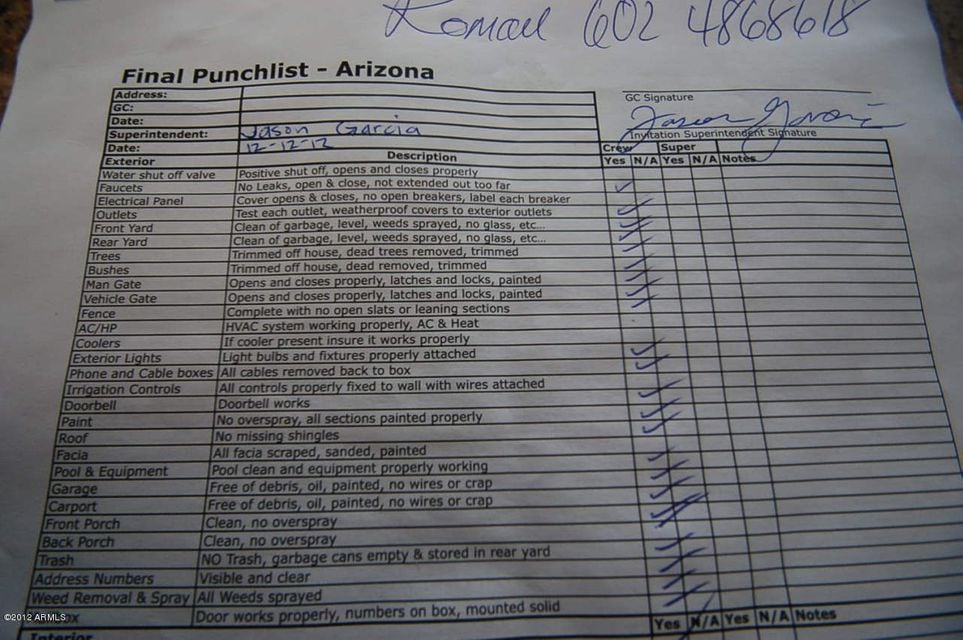 Roman 602 4868618
Final Punchlist - Arizona
Address:
GC:
Date:
Superintendent: Jason Garcia
Date: 12-12-12
GC Signature
Jason Garcia
Invitation Superintendent Signature
Exterior Description Crew Super
Yes N/A Yes N/A Notes
Water shut off valve Positive shut off, opens and closes properly
Faucets No Leaks, open & close, not extended out too far
Electrical Panel Cover opens & closes, no open breakers, label each breaker
Outlets Test each outlet, weatherproof covers to exterior outlets
Front Yard Clean of garbage, level, weeds sprayed, no glass, etc...
Rear Yard Clean of garbage, level, weeds sprayed, no glass, etc...
Trees Trimmed off house, dead trees removed, trimmed
Bushes Trimmed off house, dead removed, trimmed
Man Gate Opens and closes properly, latches and locks, painted
Vehicle Gate Opens and closes properly, latches and locks, painted
Fence Complete with no open slats or leaning sections
AC/HP HVAC system working properly, AC & Heat
Coolers If cooler present insure it works properly
Exterior Lights Light bulbs and fixtures properly attached
Phone and Cable boxes All cables removed back to box
Irrigation Controls All controls properly fixed to wall with wires attached
Doorbell Doorbell works
Paint No overspray, all sections painted properly
Roof No missing shingles
Facia All facia scraped, sanded, painted
Pool & Equipment Pool clean and equipment properly working
Garage Free of debris, oil, painted, no wires or crap
Carport Free of debris, oil, painted, no wires or crap
Front Porch Clean, no overspray
Back Porch Clean, no overspray
Trash NO Trash, garbage cans empty & stored in rear yard
Address Numbers Visible and clear
Weed Removal & Spray All Weeds sprayed
Door works properly, numbers on box, mounted solid
Yes N/A Yes N/A Notes
Interior
©2012 ARMLS